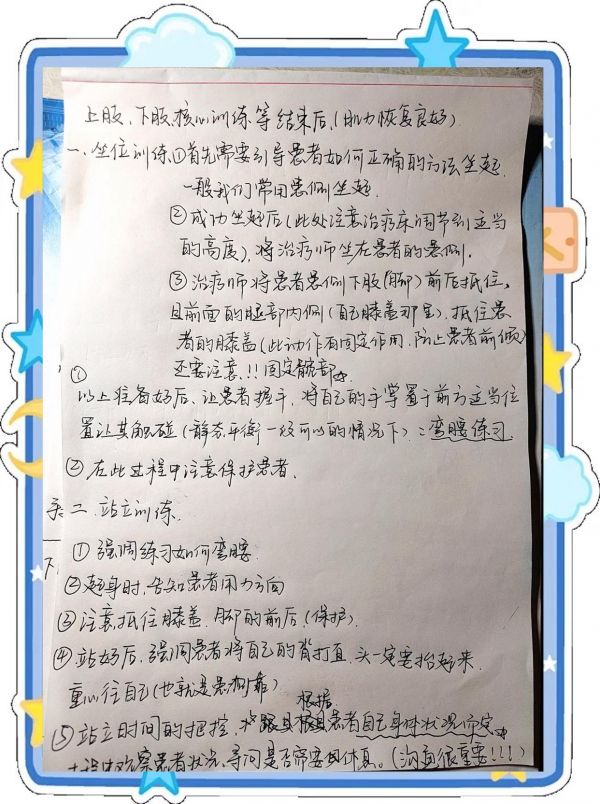 上肢、下肢、核心训练等结束后、(肌力恢复良好)
一、坐位训练、①首先需要引导患者如何正确的方法坐起.
一般我们常用患侧坐起.
②成功坐起后(此处注意治疗床调节到适当
的高度),将治疗师坐在患者的患侧.
③治疗师将患者患侧下肢(脚)前后抵住,
且前面的腿部内侧(自己膝盖那里),抵住患
者的膝盖(此动作有固定作用.防止患者前倾)
还要注意!!固定髋部
①
以上准备好后、让患者握手,将自己的手掌置于前方适当位
置让其触碰(静态平衡一级可以的情况下):弯腰练习.
②在此过程中注意保护患者.
二.站立训练.
①强调练习如何弯腰.
②起身时,告知患者用力方向
③注意抵住膝盖.脚的前后.(保护).
④站好后、强调患者将自己的背打直.头一定要抬起来.
重心往自己(也就是患侧靠)
根据
⑤站立时间的把控,患者自己身体状况而定.
观察患者状况、寻问是否需要休息。(沟通很重要!!!)